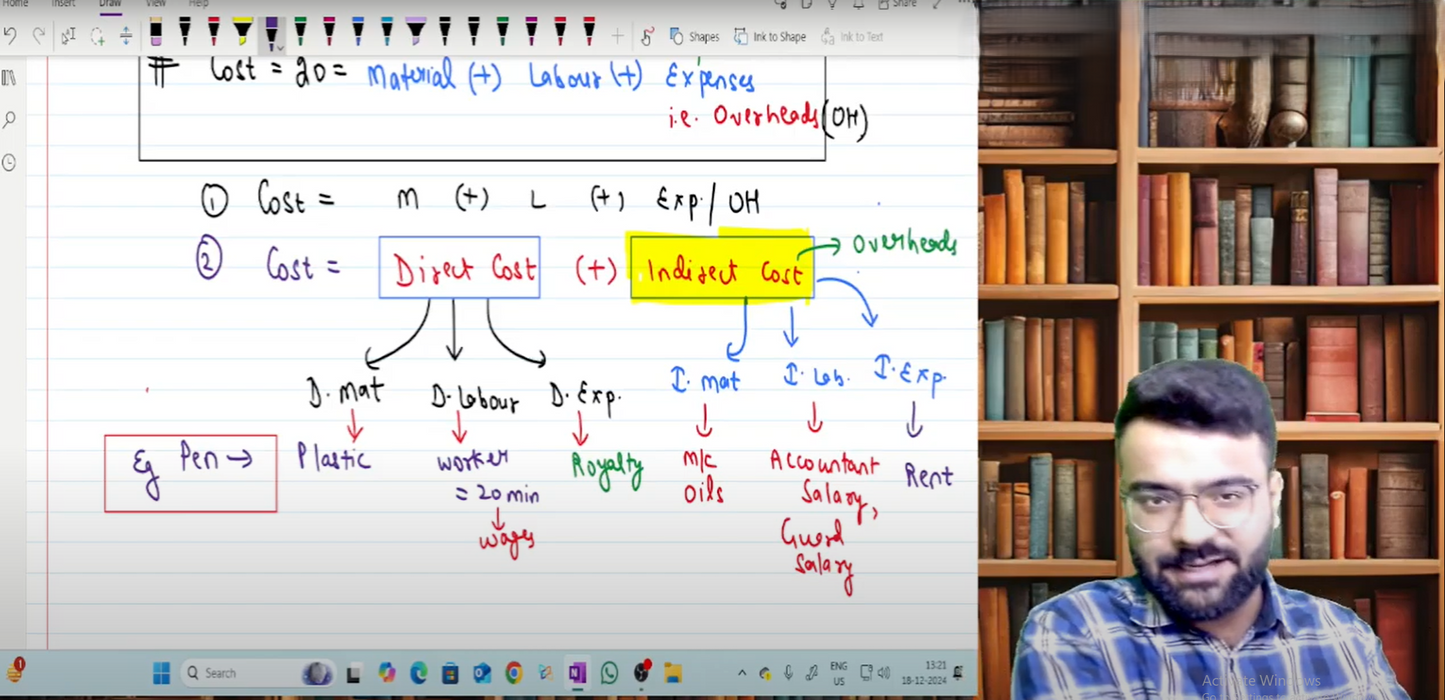 Home Insert Draw View Help Share
Shapes Ink to Shape Ink to Text
# Cost = 20 = Material (+) Labour (+) Expenses
i.e. Overheads (OH)
① Cost = M (+) L (+) Exp. / OH
② Cost = Direct Cost (+) Indirect Cost → Overheads
D. Mat D. Labour D. Exp. I. Mat I. Lab. I. Exp.
Eg Pen → Plastic Worker Royalty M/C Accountant Rent
= 20 min Oils Salary,
Wages Guard
Salary
1
Search
ENG
US
13:21
18-12-2024
Activate Windows